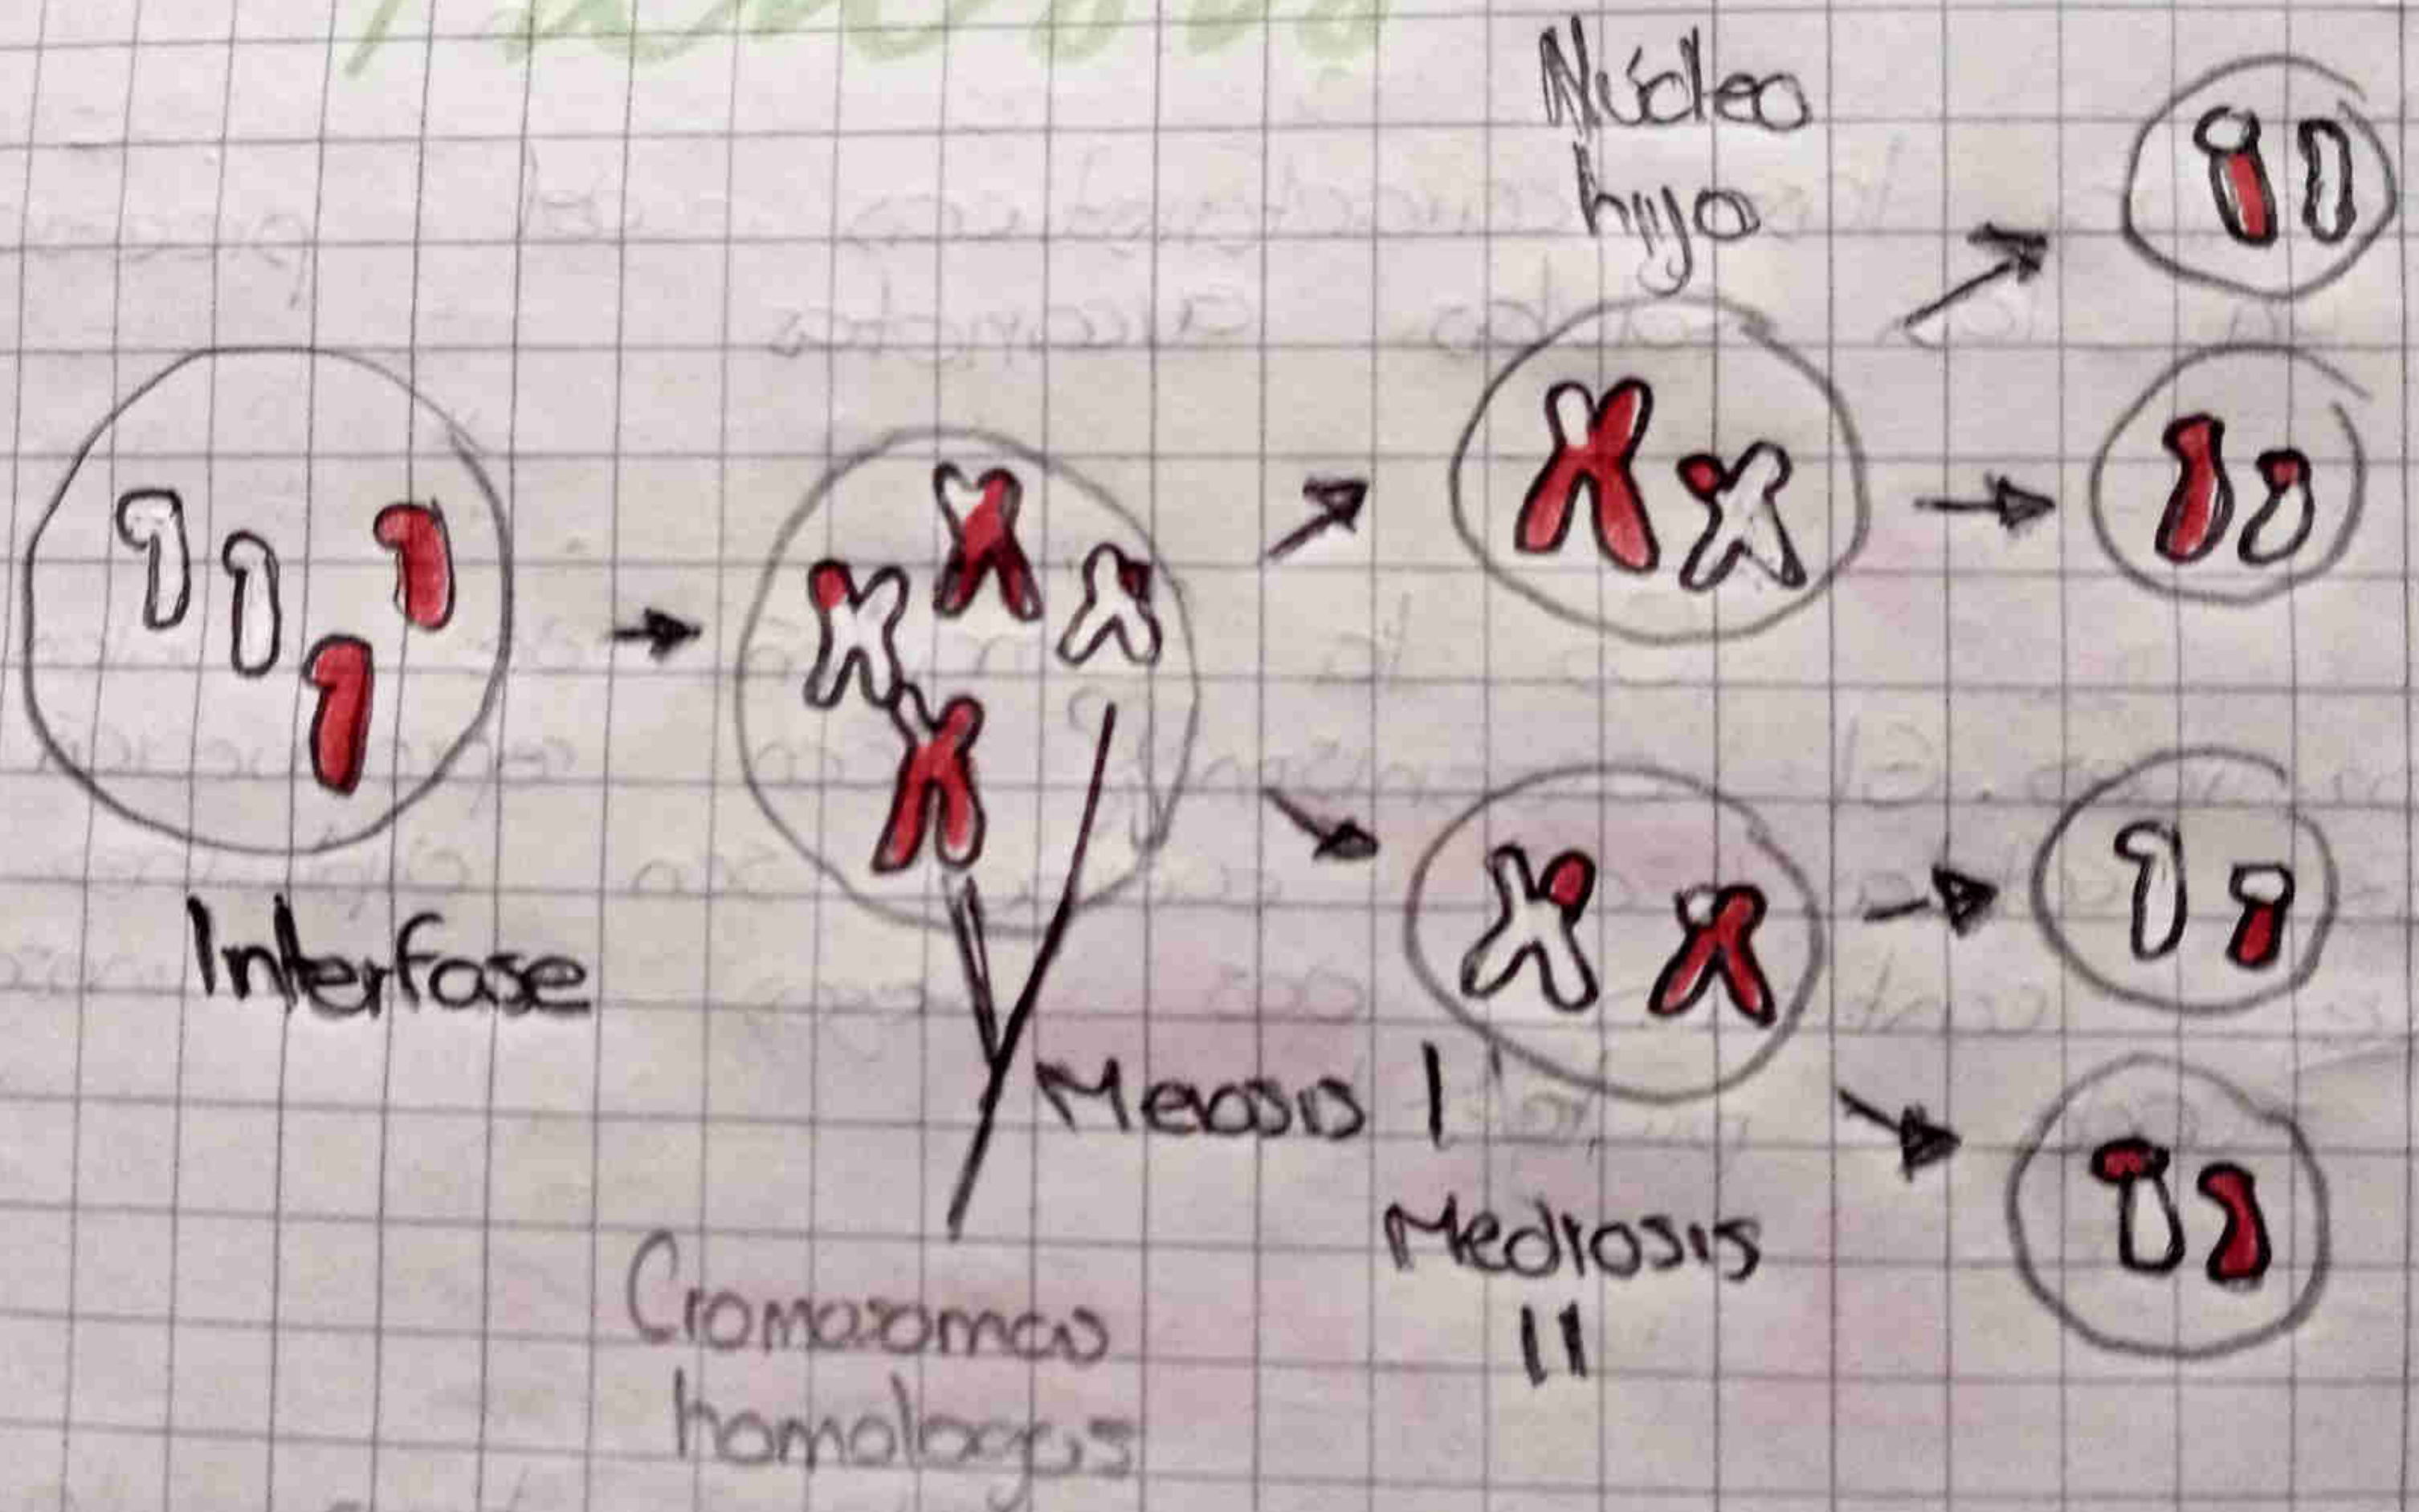 Núcleo
hijo
Interfase
Meiosis I
Mediosis
II
Cromosomas
homologos